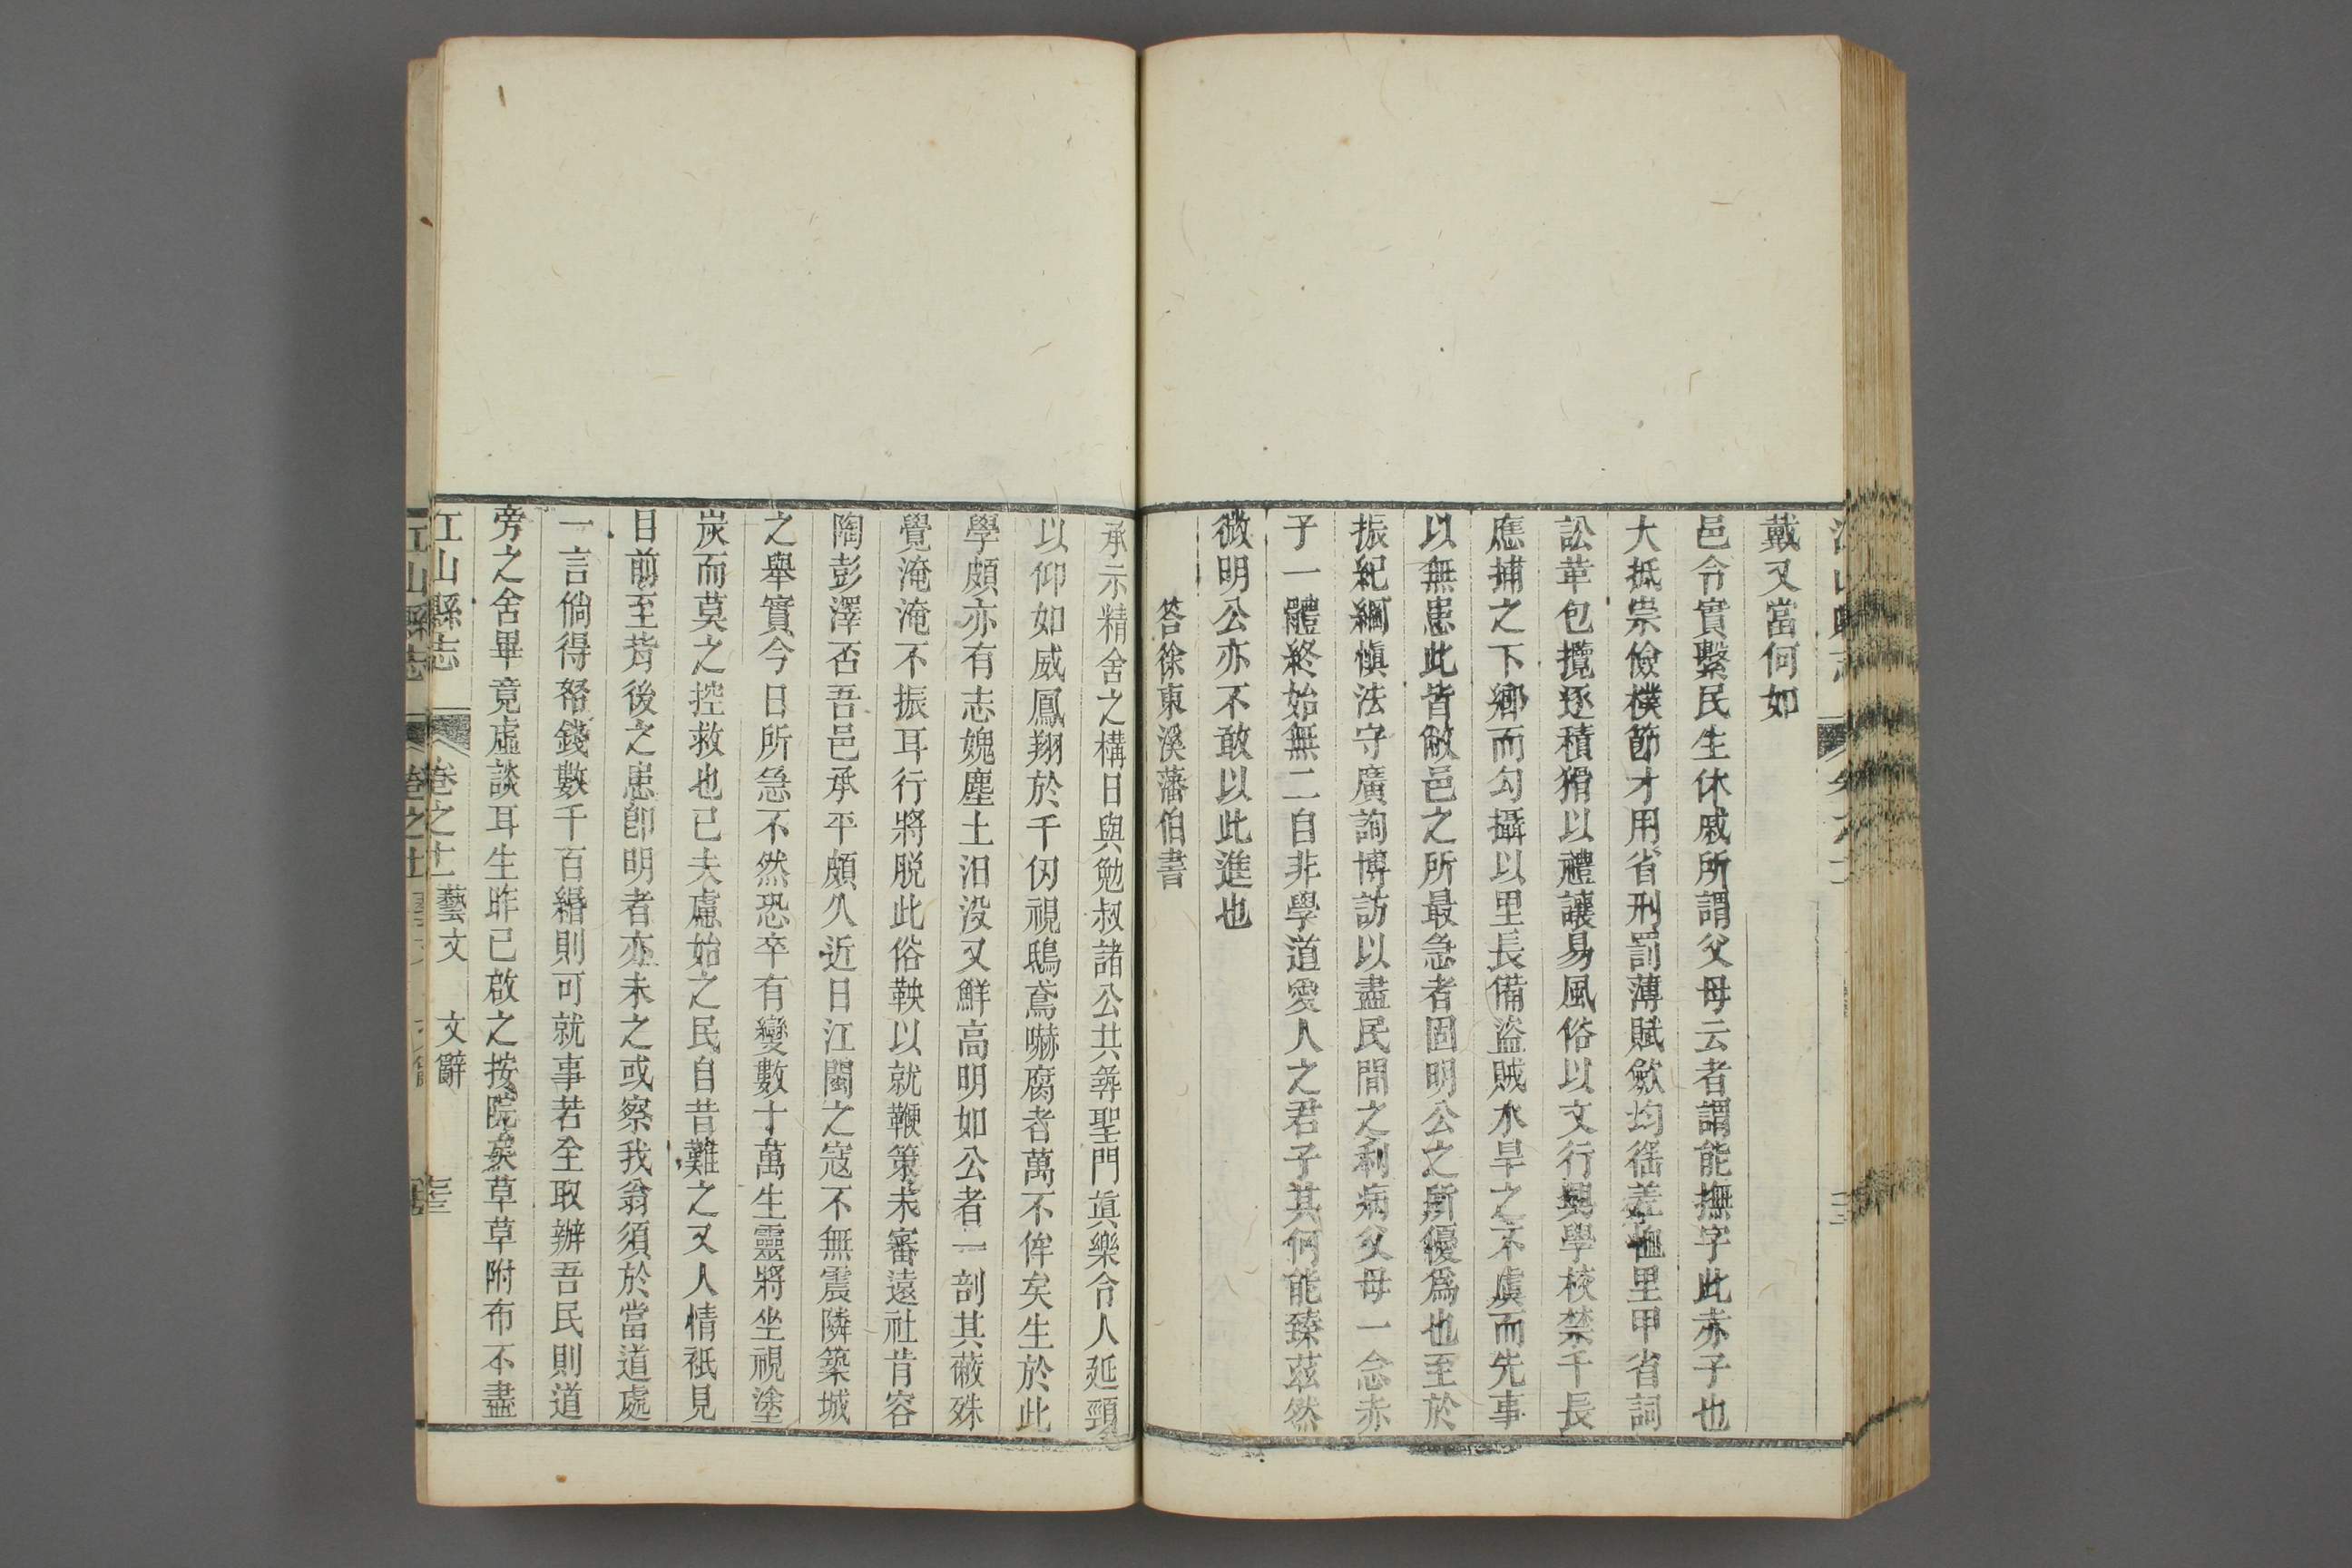 戴又當何如
邑令實繫民生休戚所謂父母云者謂能撫字此赤子也
大抵崇儉樸節才用省刑罰薄賦斂均徭差恤里甲省詞
訟革包攬逐積猾以禮讓易風俗以文行興學校禁千長
應捕之下鄉而勾攝以里長備盜賊水旱之不虞而先事
以無患此皆敝邑之所最急者固明公之所優爲也至於
振紀綱愼法守廣詢博訪以盡民間之利病父母一念赤
子一體終始無二自非學道愛人之君子其何能臻茲然
微明公亦不敢以此進也
答徐東溪藩伯書
承示精舍之構日與勉叔諸公共彝聖門眞樂令人延頸
以仰如威鳳翔於千仭視鴟鳶嚇腐者萬不侔矣生於此
學頗亦有志媿塵土汨没又鮮高明如公者一剖其蔽殊
覺淹淹不振耳行將脱此俗鞅以就鞭策未審遠社肯容
陶彭澤否吾邑承平頗久近日江閩之寇不無震隣築城
之舉實今日所急不然恐卒有變數十萬生靈將坐視塗
炭而莫之控救也已夫慮始之民自昔難之又人情衹見
目前至背後之患卽明者亦未之或察我翁須於當道處
一言倘得帑錢數千百緡則可就事若全取辦吾民則道
旁之舍畢竟虛談耳生昨已啟之按院矣草草附布不盡
江山縣志 卷之十一 藝文 文辭
江山縣志 卷之十一